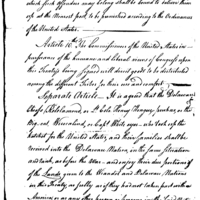 which such offenders may belong shall be bound to deliver them
up at the nearest post, to be punished according to the Ordinances
of the United States.
Article 10th The Commissioners of the United States in
pursuance of the humane and liberal views of Congress upon
this Treaty's being signed will direct goods to be distributed
among the different Tribes for their use and comfort.
Separate Article It is agreed that the Delaware
Chiefs Kelelamand or Lt Colo Henry, Hengue Pushees or the
Big Cat, Wicocalind or Capt White eyes who took up the
hatchet for the United States, and their families shall be
received into the Delaware Nation, in the same situation
and rank, as before the War, and enjoy their due portions
of the Lands given to the Wiandot and Delaware Nations
in this Treaty, as fully as if they had not taken part with
America or as any other person or persons in the said